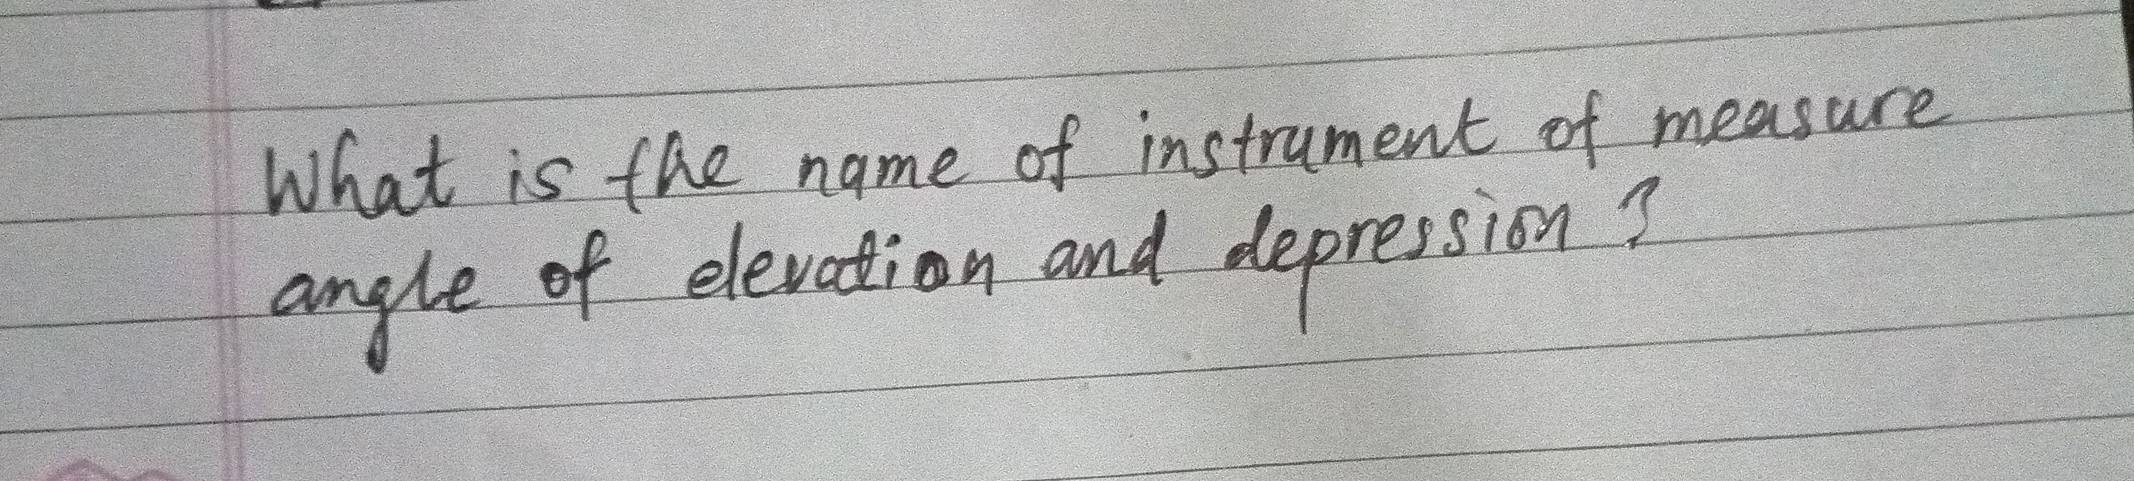 What is the name of instrument of measure
angle of elevation and depression ?